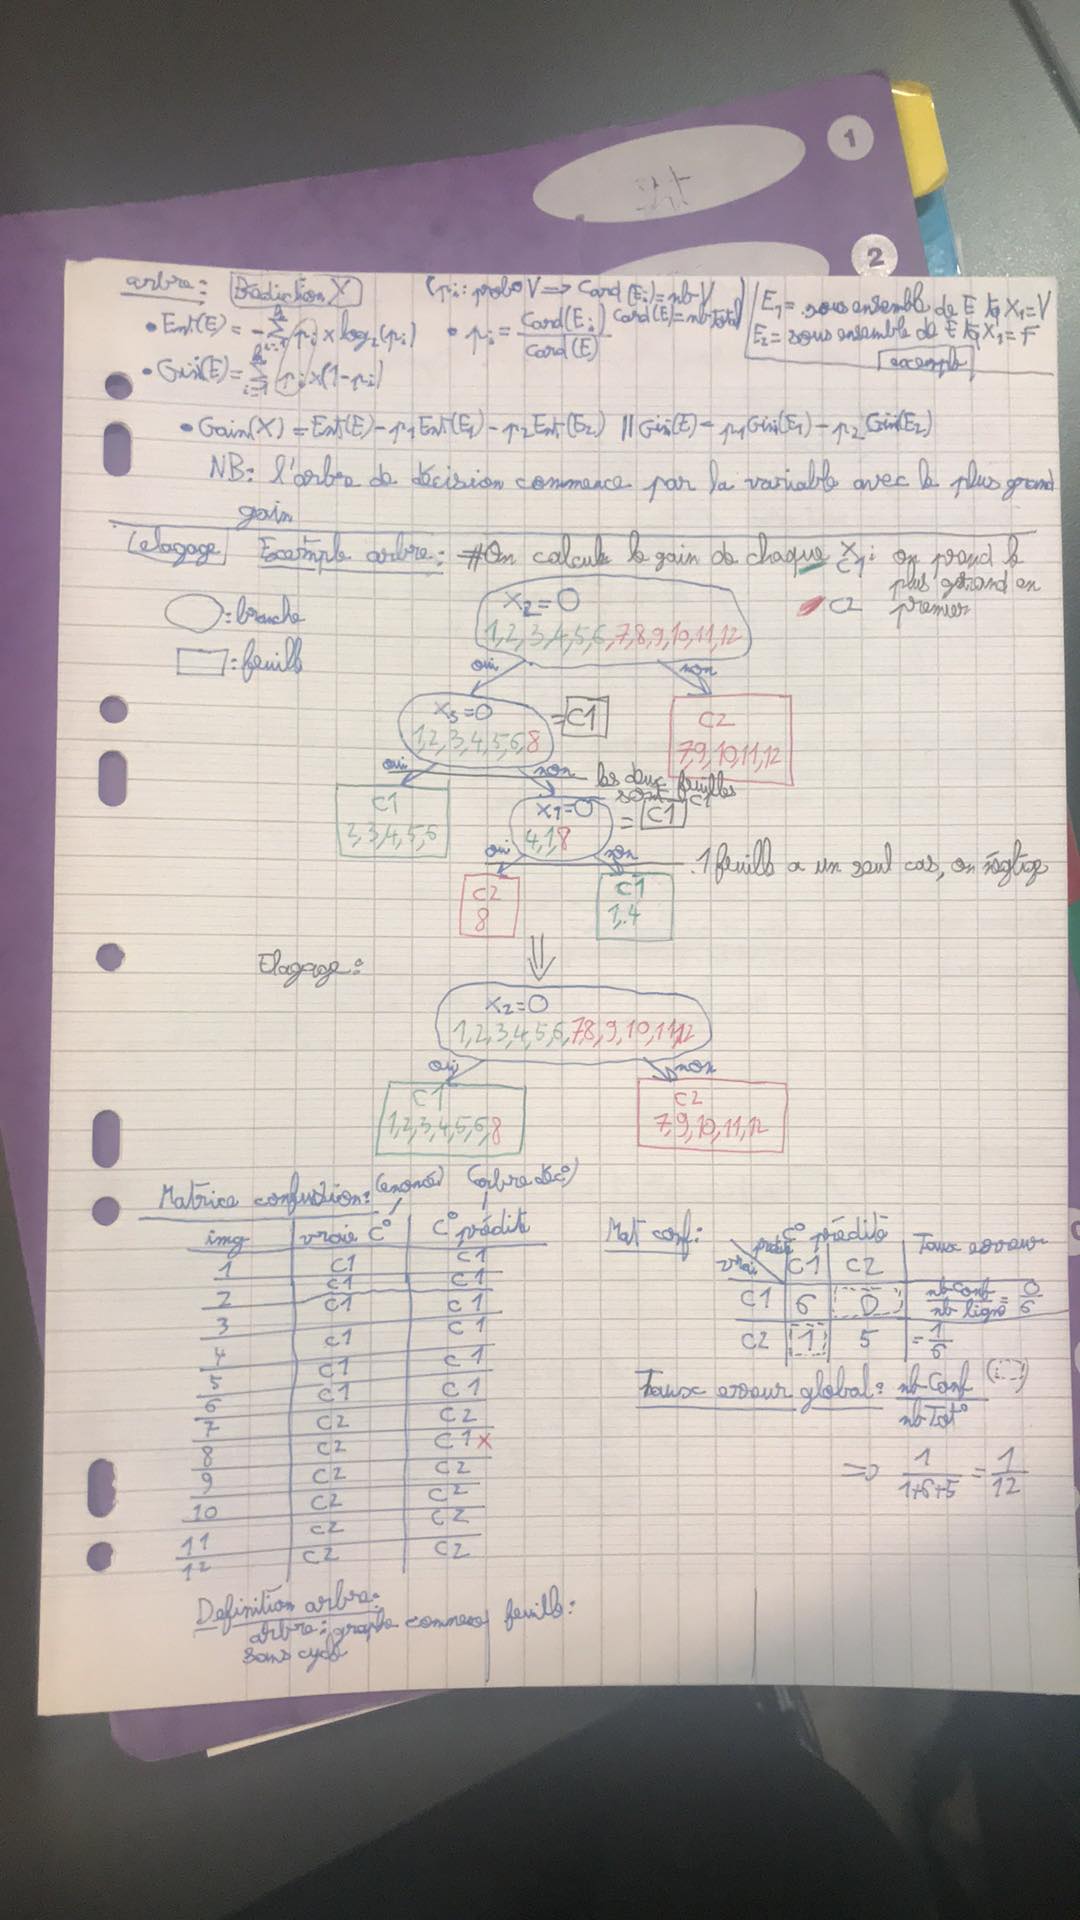 1
2
arbre: Prédiction X
(pi: proba V => Card(Ei)=nb V
Card(E)=nb Total)
E1= sous ensemble de E tq X1=V
E2= sous ensemble de E tq X1=F
exemple
• Ent(E) = -∑ pi x log2(pi)
• pi = Card(Ei) / Card(E)
• Gini(E) = ∑ i=1 pi x (1-pi)
• Gain(X) = Ent(E) - p1Ent(E1) - p2Ent(E2) // Gini(E) - p1Gini(E1) - p2 Gini(E2)
NB: l'arbre de décision commence par la variable avec le plus grand
gain
(elagage) Exemple arbre: #On calcule le gain de chaque Xi: on prend le
plus grand en
premier
C2
: branche
: feuille
X2=0
1,2,3,4,5,6,7,8,9,10,11,12
oui non
X3=0 = C1
1,2,3,4,5,6,8
C2
7,9,10,11,12
oui non
les deux feuilles
sont C1
C1
2,3,4,5,6
X1=0 = C1
4,1,8
oui non
1 feuille a un seul cas, on néglige
C2
8
C1
1,4
Elagage:
X2=0
1,2,3,4,5,6,7,8,9,10,11,12
oui non
C1
1,2,3,4,5,6,8
C2
7,9,10,11,12
Matrice confustion: (enoncé) (arbre déc°)
img vraie C° C° prédite
1 C1 C1
2 C1 C1
3 C1 C1
4 C1 C1
5 C1 C1
6 C1 C1
7 C2 C2
8 C2 C1 x
9 C2 C2
10 C2 C2
11 C2 C2
12 C2 C2
Mat conf: C° prédite
vraie C1 C2 Taux erreur
C1 6 0 nb conf / nb ligne = 0/6
C2 1 5 = 1/6
Taux erreur global: nb Conf / nb Tot°
=> 1/(1+6+5) = 1/12
Definition arbre:
arbre: graphe connexe feuille:
sans cycle